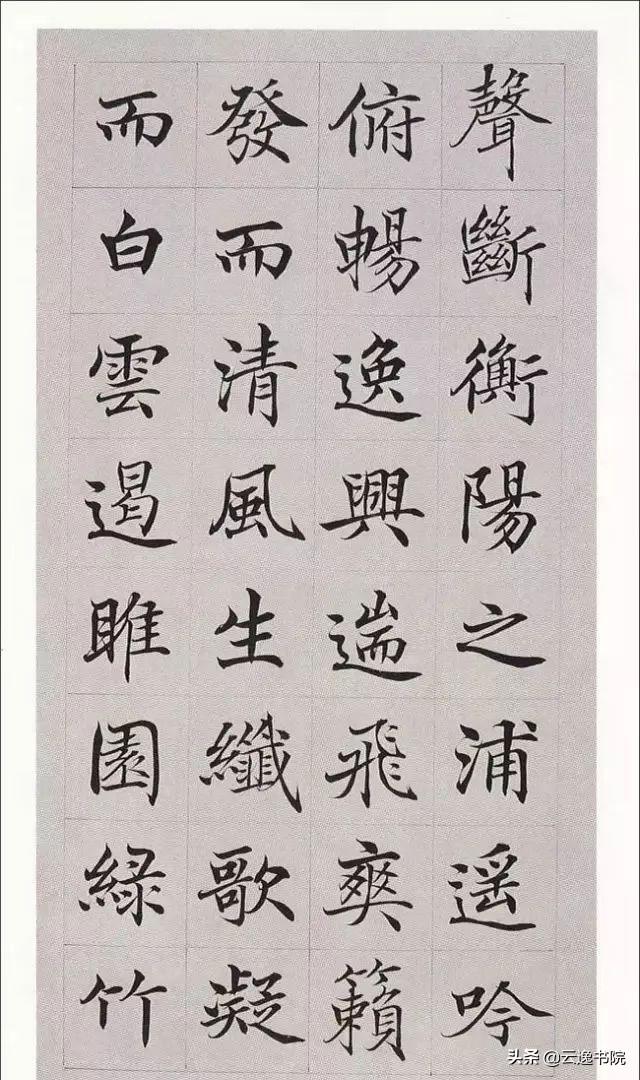 聲斷衡陽之浦遥吟
俯暢逸興遄飛爽籟
發而清風生纖歌凝
而白雲遏睢園緑竹
头条 @云逸书院